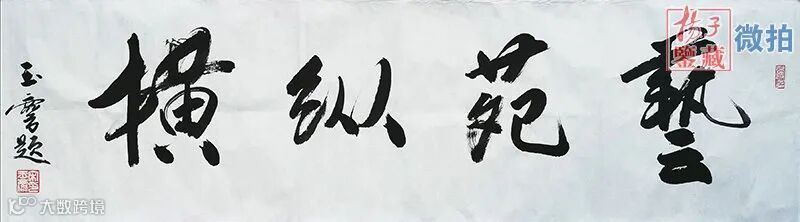 藝苑纵横
玉题
揚子
鑒藏
微拍
大数跨境